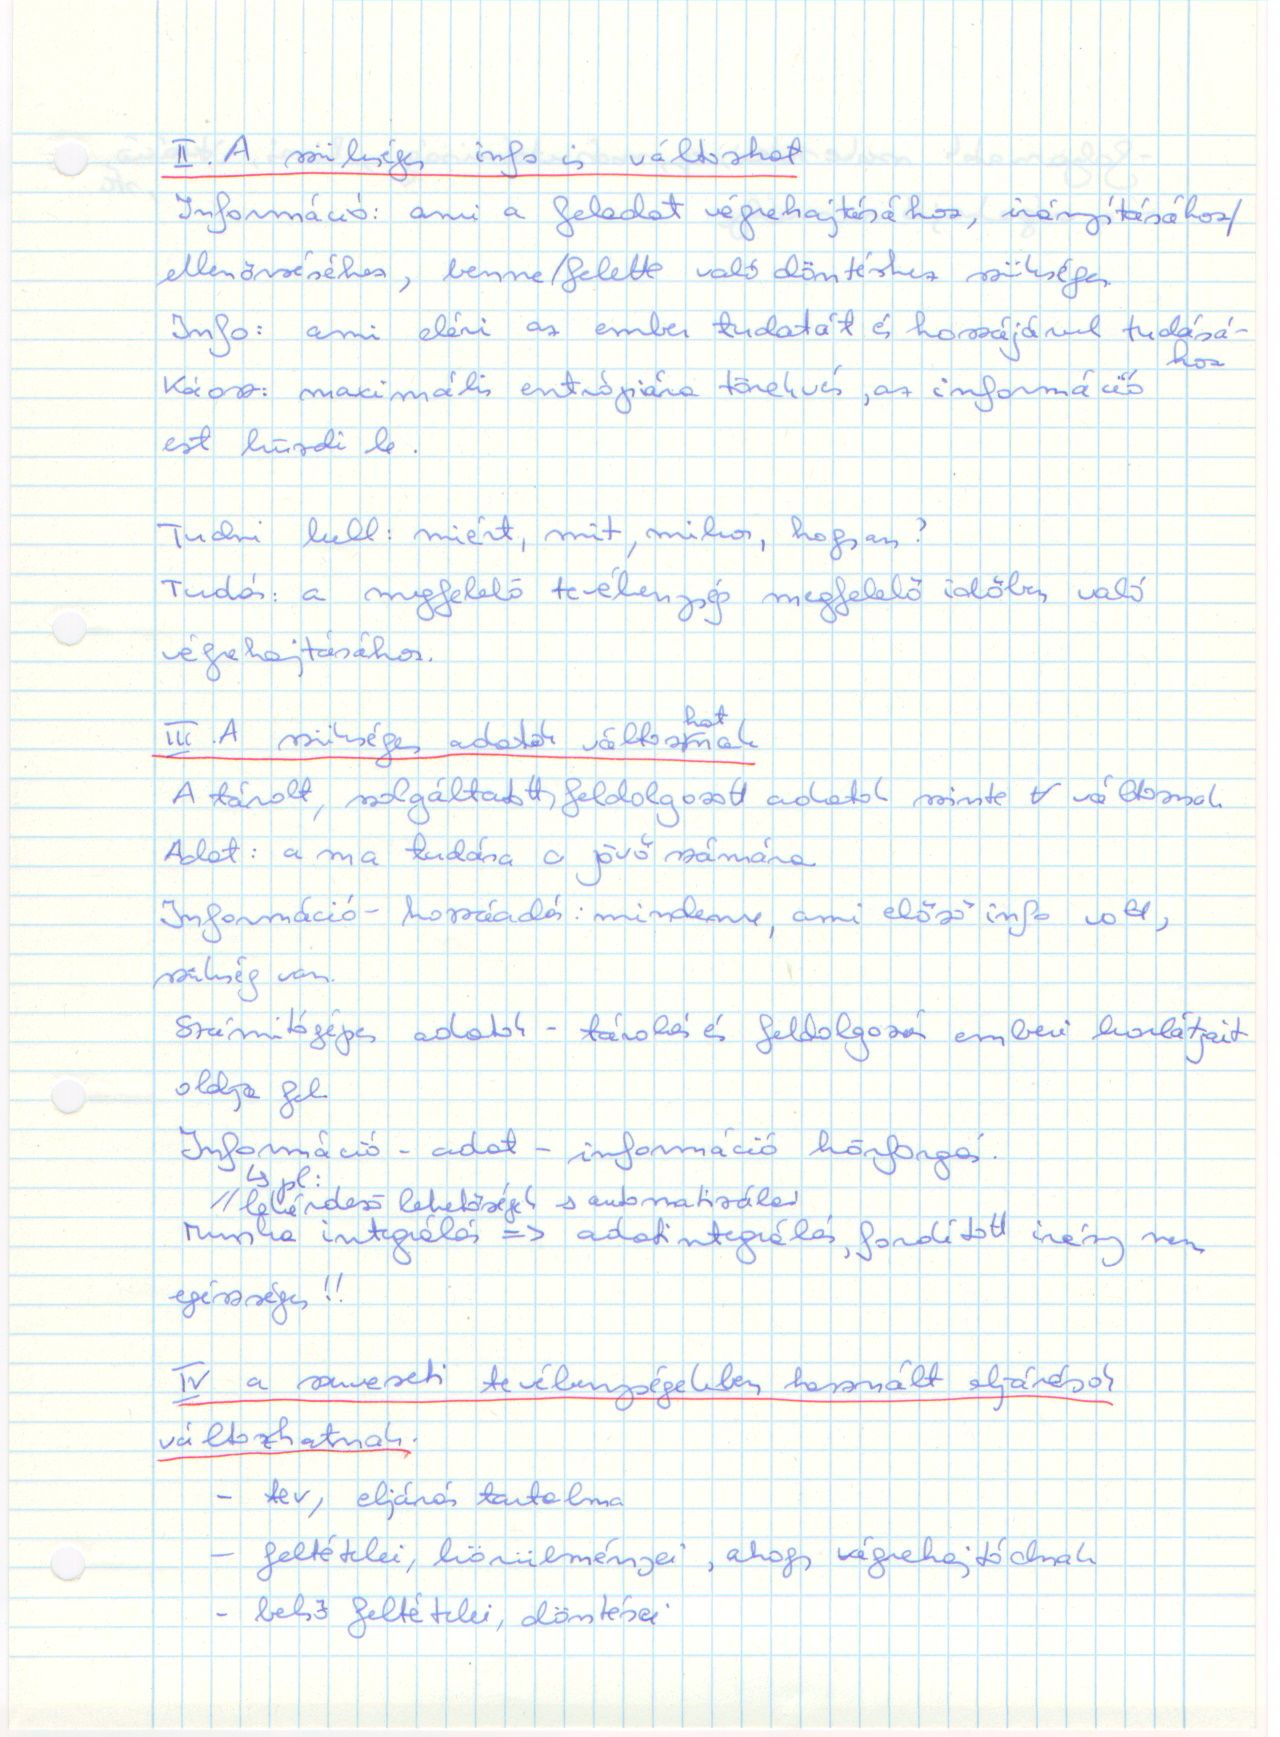 II. A szükséges info is változhat
Információ: ami a feladat végrehajtásához, irányításához/
ellenőrzéséhez, benne/felette való döntéshez szükséges
Info: ami eléri az ember tudatát és hozzájárul tudásá-
hoz
Káosz: maximális entrópiára törekvés, az információ
ezt küzdi le.
Tudni kell: miért, mit, mikor, hogyan?
Tudás: a megfelelő tevékenység megfelelő időben való
végrehajtásához.
III. A szükséges adatok változhatnak
A tárolt, szolgáltatott, feldolgozott adatok szinte ∀ változnak
Adat: a ma tudása a jövő számára
Információ - hozzáadás: mindenre, ami előző info volt,
szükség van.
Számítógépes adatok - tárolás és feldolgozás emberi korlátjait
oldja fel
Információ - adat - információ körforgás.
↳ pl:
// lekérdező lehetőségek s automatizálás
Munka integrálás => adatintegrálás, fordított irány nem
egészséges!!
IV a szervezeti tevékenységekben használt eljárások
változhatnak.
- tev, eljárás tartalma
- feltételei, körülményei, ahogy végrehajtódnak
- belső feltételei, döntései